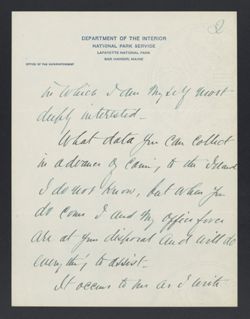 2
DEPARTMENT OF THE INTERIOR
NATIONAL PARK SERVICE
LAFAYETTE NATIONAL PARK
BAR HARBOR, MAINE
OFFICE OF THE SUPERINTENDENT
in which I am myself most
deeply interested.
What data you can collect
in advance of coming to the Island
I do not know, but when you
do come I and my office force
are at your disposal and will do
everything to assist.
It occurs to me as I write